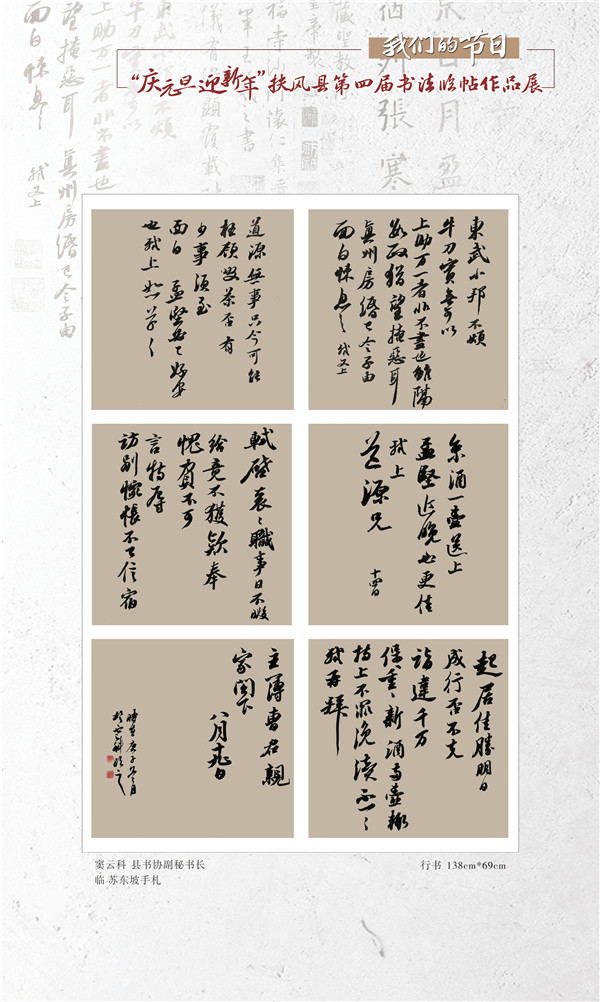 我们的节日
“庆元旦迎新年”扶风县第四届书法临帖作品展
東武小邦不煩
牛刀實無可以
上助万一者非不盡也雖隔
數政猶望掩惡耳
真州房緡已令子由
面白悚息々 軾又上
道源無事只今可能
枉顧啜茶否有
少事須至
面白 孟堅必已好安
也軾上 恕草々
京酒一壺送上
孟堅近晚必更佳
軾上
道源兄
十四日
軾啓衮々職事日不暇
給竟不獲款奉
愧負不可
言特辱
訪別惋悵不已信宿
起居佳勝明日
成行否不克
詣違千万
保重々新酒兩壺輒
持上不罪浼瀆不一々
軾再拜
主簿曹君親
家閣下
八月十九日
時在庚子冬之月
窦云科 县书协副秘书长
临 苏东坡手札
行书 138cm*69cm